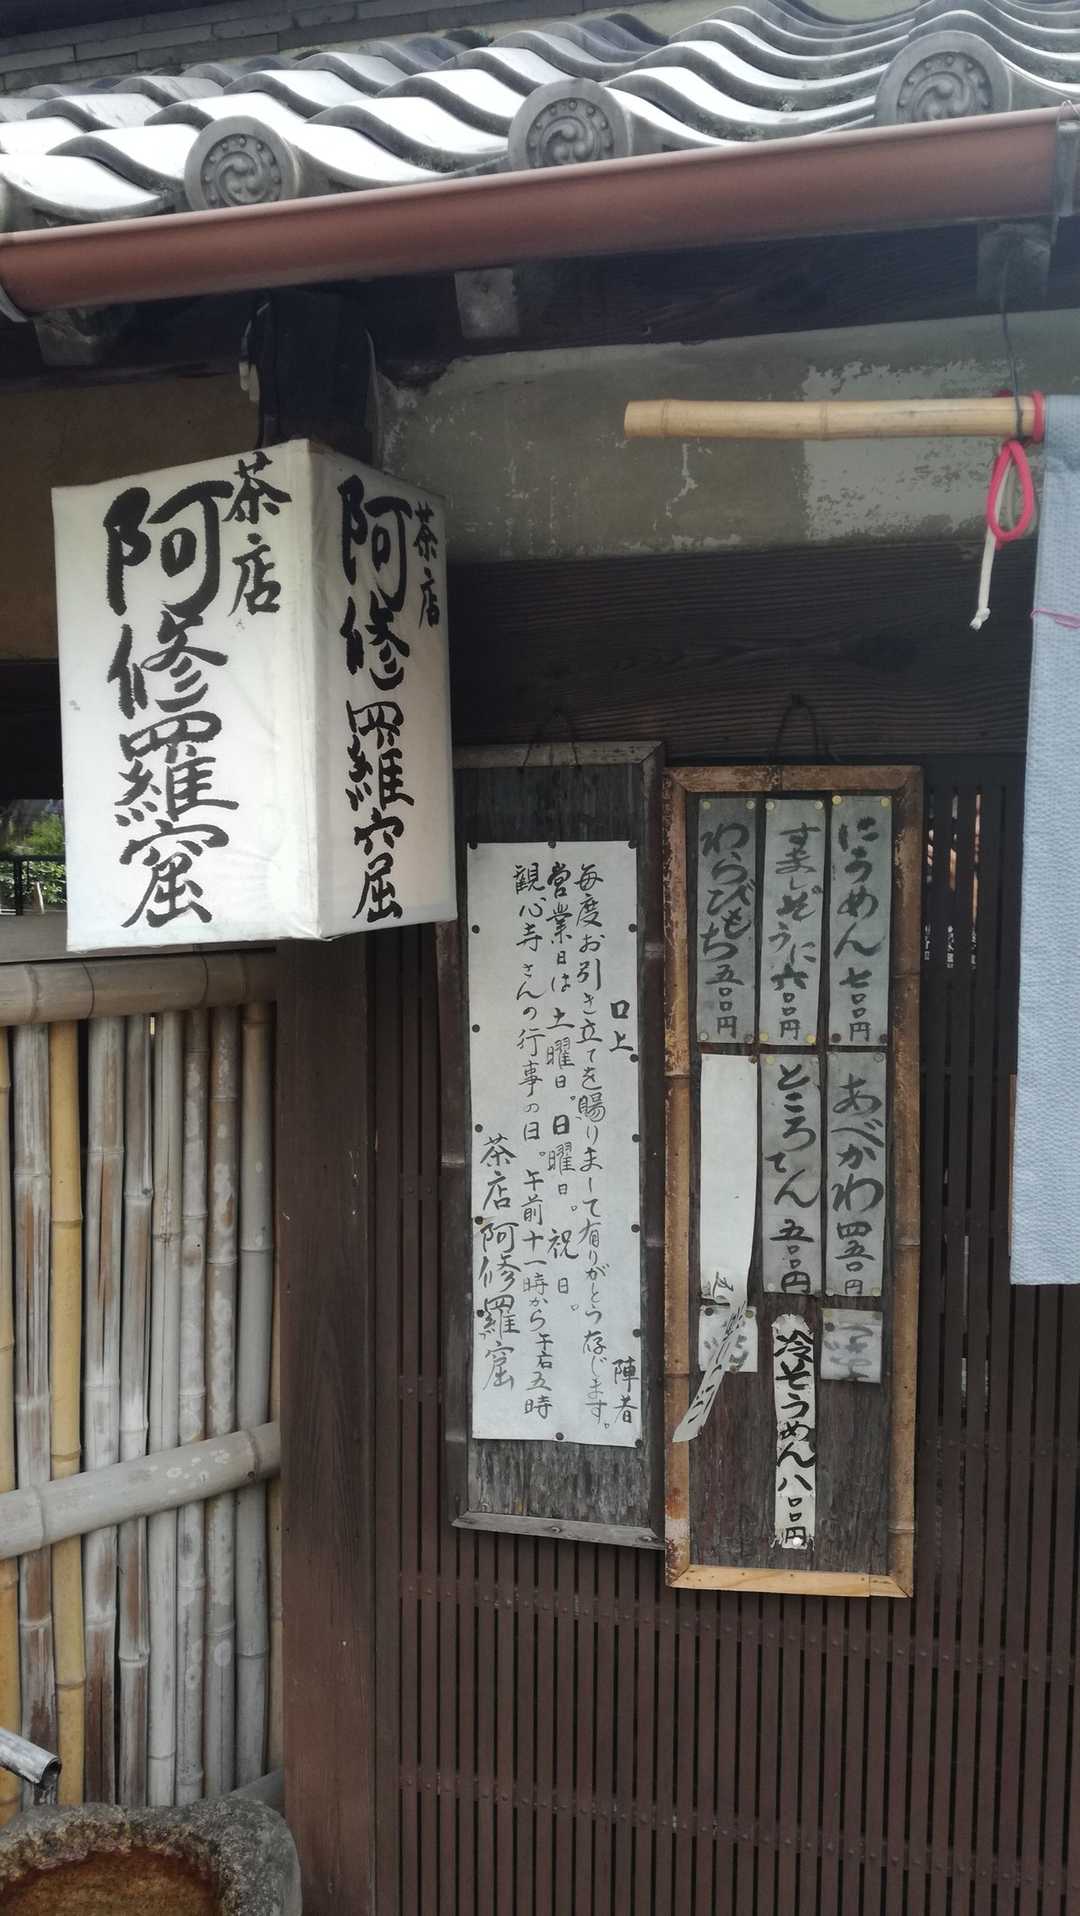 茶店
阿修羅窟
茶店
阿修羅窟
口上
毎度お引き立てを賜りまして有りがとう存じます。
営業日は土曜日。日曜日。祝日。
観心寺さんの行事の日。午前十一時から午后五時
茶店 阿修羅窟
にうめん 七〇〇円
すましぞうに 六〇〇円
わらびもち 五〇〇円
あべかわ 四五〇円
ところてん 五〇〇円
冷そうめん 八〇〇円